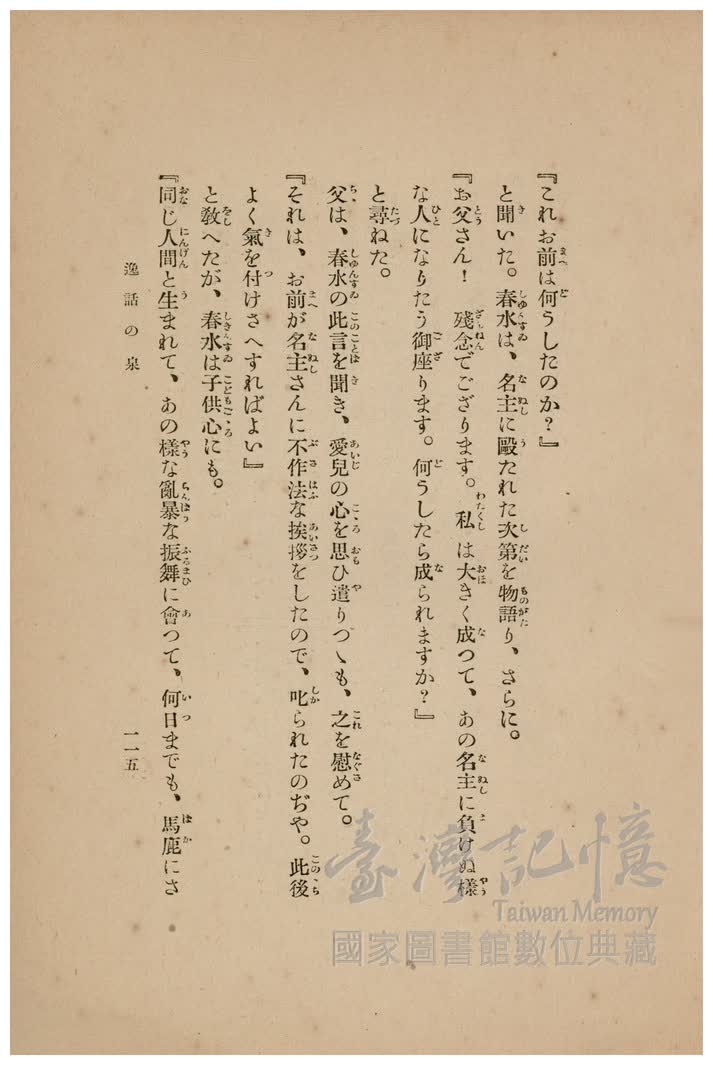 『これお前は何うしたのか？』
と聞いた。春水は、名主に毆たれた次第を物語り、さらに。
『お父さん！　殘念でござります。私は大きく成つて、あの名主に負けぬ樣
な人になりたう御座ります。何うしたら成られますか？』
と尋ねた。
父は、春水の此言を聞き、愛兒の心を思ひ遣りつゝも、之を慰めて。
『それは、お前が名主さんに不作法な挨拶をしたので、叱られたのぢや。此後
よく氣を付けさへすればよい』
と敎へたが、春水は子供心にも。
『同じ人間と生まれて、あの樣な亂暴な振舞に會つて、何日までも、馬鹿にさ
逸話の泉
一一五
臺灣記憶
Taiwan Memory
國家圖書館數位典藏